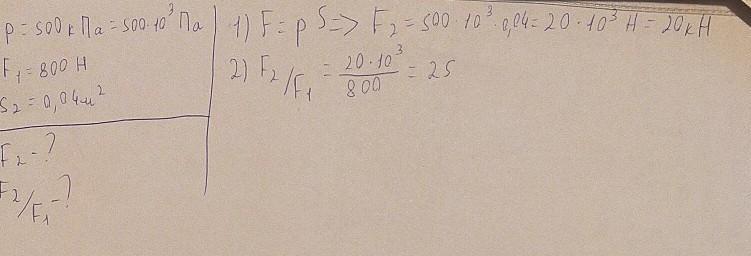 p = 500 кПа = 500·10³ Па
F₁ = 800 Н
S₂ = 0,04 м²
F₂ - ?
F₂/F₁ - ?
1) F = pS => F₂ = 500·10³·0,04 = 20·10³ Н = 20 кН
2) F₂/F₁ = 20·10³/800 = 25